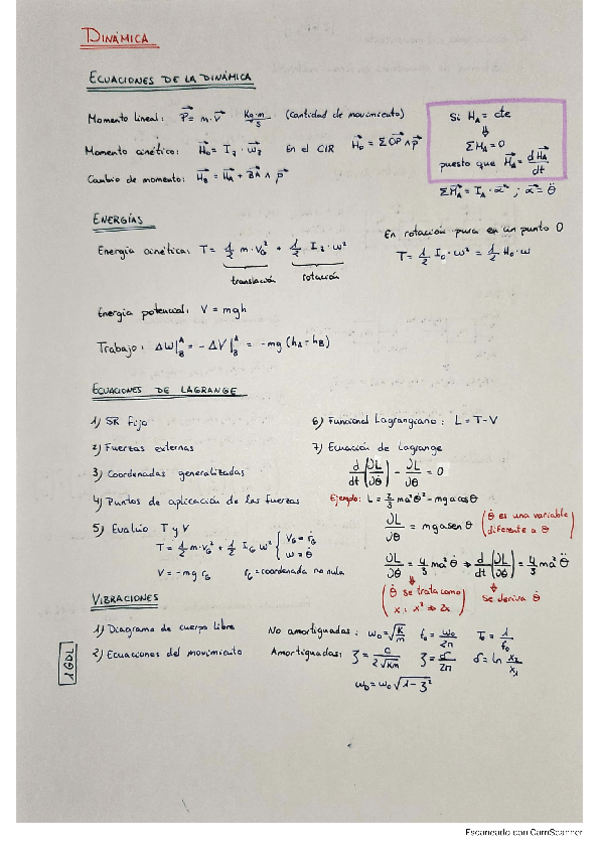 DINÁMICA
ECUACIONES DE LA DINÁMICA
Momento lineal: P⃗ = m·V⃗ Kg·m/s (Cantidad de movimiento)
Momento cinético: H⃗₀ = I₂·ω⃗₂ En el CIR H⃗₀ = ΣOP⃗∧p⃗
Cambio de momento: H⃗_B = H⃗_A + BA⃗∧p⃗
Si H_A = cte
⇓
ΣM_A = 0
puesto que M⃗_A = dH⃗_A/dt
ΣM⃗_A = I_A·α⃗ ; α⃗ = θ̈
ENERGÍAS
Energía cinética: T = 1/2 m·V_G² + 1/2 I₂·ω²
translación rotación
En rotación pura en un punto O
T = 1/2 I₀·ω² = 1/2 H₀·ω
Energía potencial: V = mgh
Trabajo: ΔW|ᴬ_B = -ΔV|ᴬ_B = -mg(h_A-h_B)
ECUACIONES DE LAGRANGE
1) SR fijo
2) Fuerzas externas
3) Coordenadas generalizadas
4) Puntos de aplicación de las fuerzas
5) Evalúo T y V
T = 1/2 m·V_G² + 1/2 I_G ω² { V_G = ṙ_G
ω = θ̇
V = -mg r_G r_G = coordenada no nula
6) Funcional Lagrangiano: L = T-V
7) Ecuación de Lagrange
d/dt(∂L/∂θ̇) - ∂L/∂θ = 0
Ejemplo: L = 2/3 ma²θ̇² - mga cosθ
∂L/∂θ = mga senθ (θ̇ es una variable
diferente a θ)
∂L/∂θ̇ = 4/3 ma² θ̇ ⇒ d/dt(∂L/∂θ̇) = 4/3 ma² θ̈
(θ̇ se trata como
x: x² ⇒ 2x)
Se deriva θ̇
VIBRACIONES
1GDL
1) Diagrama de cuerpo libre
2) Ecuaciones del movimiento
No amortiguadas: ω₀ = √(K/m) f₀ = ω₀/2π T₀ = 1/f₀
Amortiguadas: ζ = c/(2√(Km)) ζ = δ/2π δ = ln x₂/x₁
ω_D = ω₀√(1-ζ²)
Escaneado con CamScanner